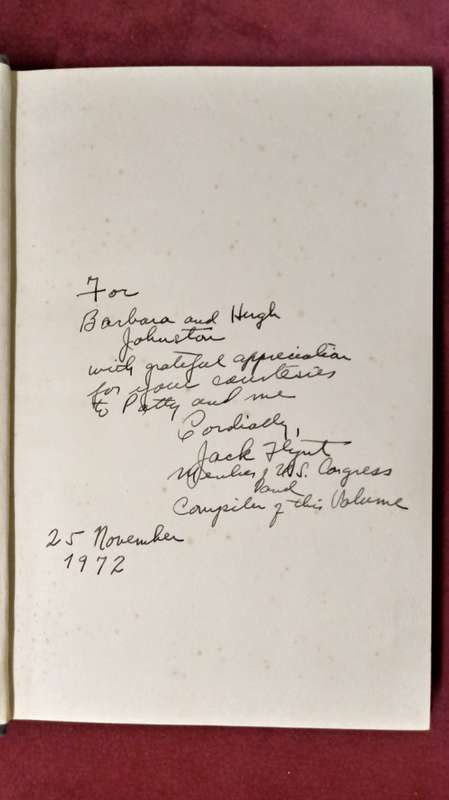 For
Barbara and Hugh
Johnston
with grateful appreciation
for your courtesies
to Patty and me
Cordially,
Jack Flynt
Member of U.S. Congress
and
Compiler of this Volume
25 November
1972